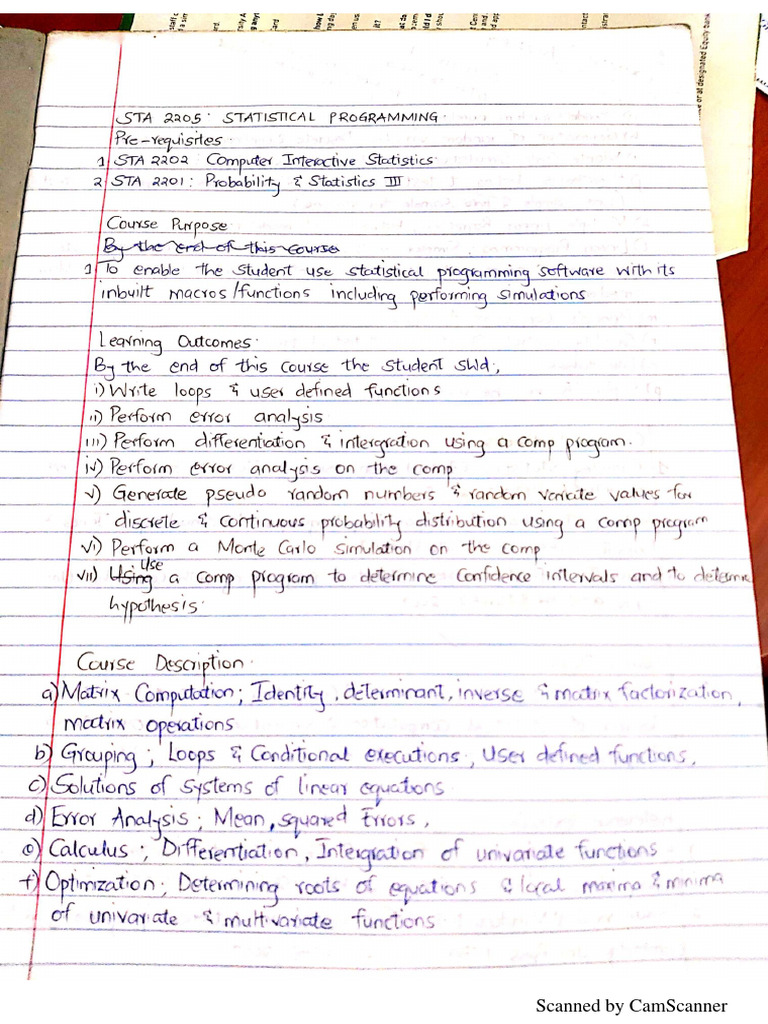 STA 2205: STATISTICAL PROGRAMMING.
Pre-requisites.
1 STA 2202 Computer Interactive Statistics
2 STA 2201: Probability & Statistics III
Course Purpose
By the end of this course
1 To enable the student use statistical programming software with its
inbuilt macros/functions including performing simulations
Learning Outcomes.
By the end of this course the student shld,
i) Write loops & user defined functions
ii) Perform error analysis
iii) Perform differentiation & intergration using a comp program.
iv) Perform error analysis on the comp
v) Generate pseudo random numbers & random variate values for
discrete & continuous probability distribution using a comp program
vi) Perform a Monte Carlo simulation on the comp
vii) Using Use a comp program to determine confidence intervals and to determine
hypothesis.
Course Description.
a) Matrix Computation; Identity, determinant, inverse & matrix factorization,
matrix operations
b) Grouping; Loops & Conditional executions, User defined functions,
c) Solutions of systems of linear equations
d) Error Analysis; Mean, squared Errors,
e) Calculus; Differentiation, Intergration of univariate functions
f) Optimization; Determining roots of equations & local maxima & minima
of univariate & multivariate functions
Scanned by CamScanner